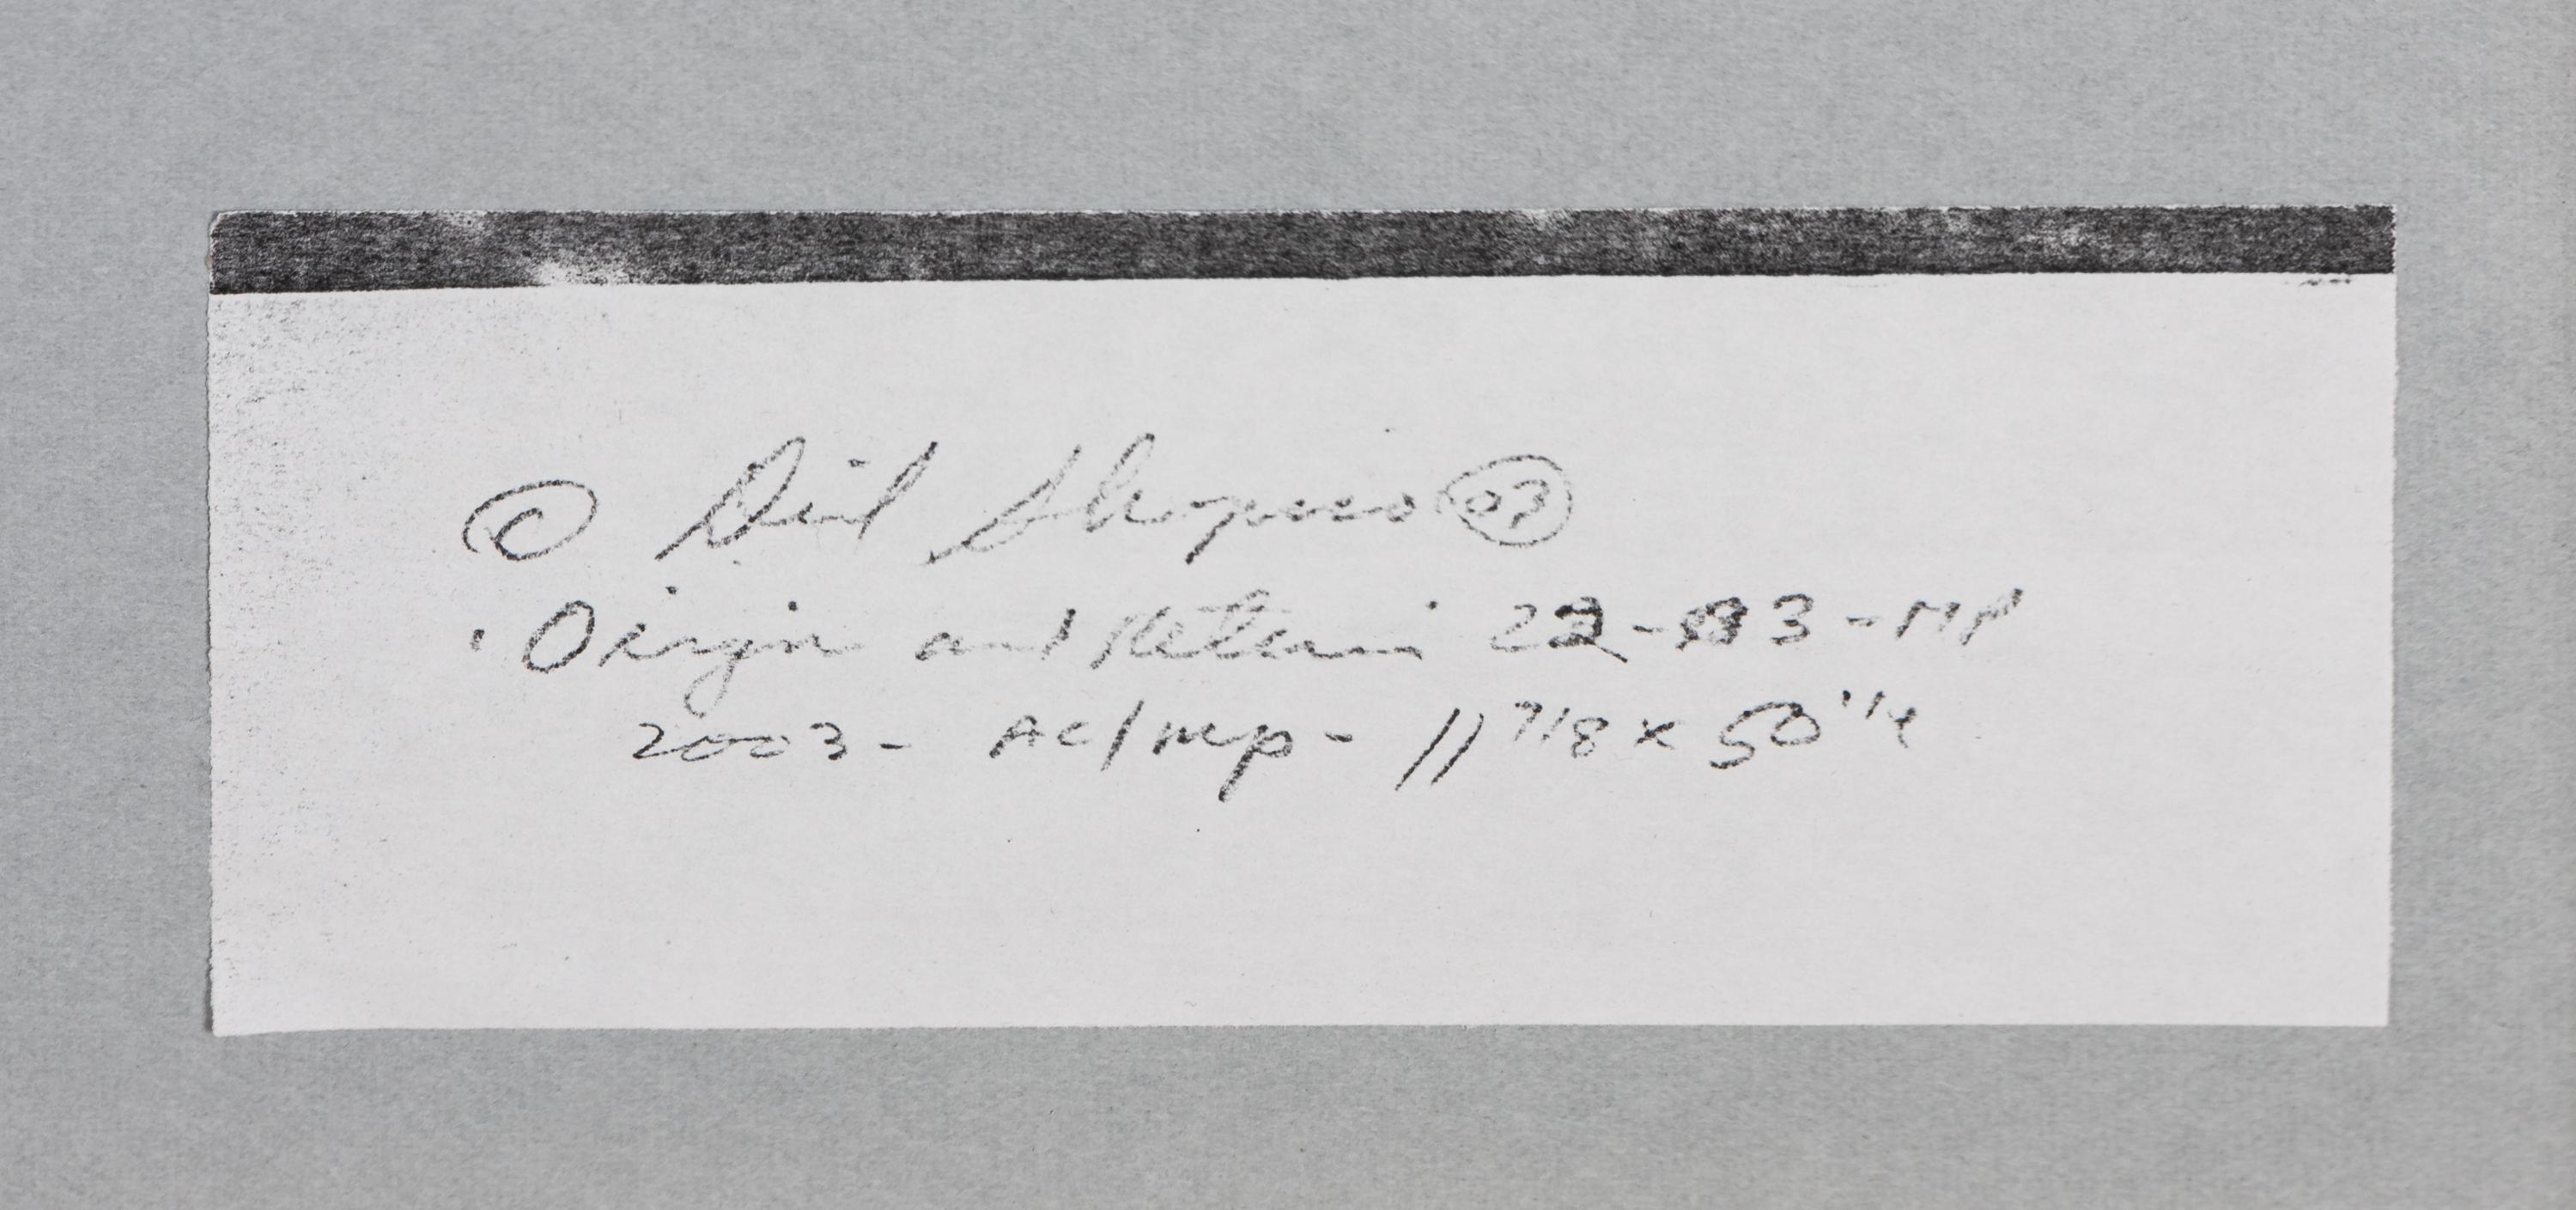 © David Shapiro 03
Origin and Return 22-33-MP
2003 - AC/mp - 11 7/8 x 50 1/4